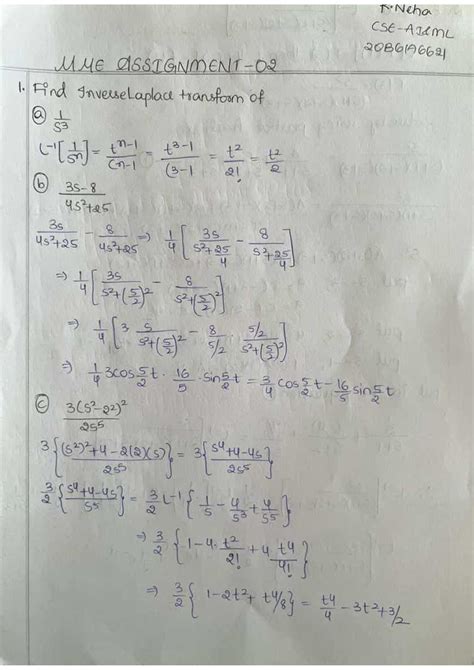 K. Neha
CSE-AI&ML
20861A6621
MME ASSIGNMENT-02
1. Find Inverse Laplace transform of
(a) 1/S³
L⁻¹[1/Sⁿ] = tⁿ⁻¹/(n-1 = t³⁻¹/(3-1 = t²/2! = t²/2
(b) 3s-8/4s²+25
3s/4s²+25 - 8/4s²+25 ⇒ 1/4[3s/s²+25/4 - 8/s²+25/4]
⇒ 1/4[3s/s²+(5/2)² - 8/s²+(5/2)²]
⇒ 1/4[3 s/s²+(5/2)² - 8/5/2 · 5/2/s²+(5/2)²]
⇒ 1/4 3cos5/2t · 16/5 · sin5/2t = 3/4 cos5/2t - 16/5 sin5/2t
(c) 3(s²-2²)²/2s⁵
3{(s²)²+4-2(2)(s)/2s⁵} = 3{s⁴+4-4s/2s⁵}
3/2{s⁴+4-4s/s⁵} = 3/2 L⁻¹{1/s - 4/s³ + 4/s⁵}
⇒ 3/2{1-4·t²/2! + 4 t⁴/4!}
⇒ 3/2{1-2t²+t⁴/8} = t⁴/4 - 3t²+3/2